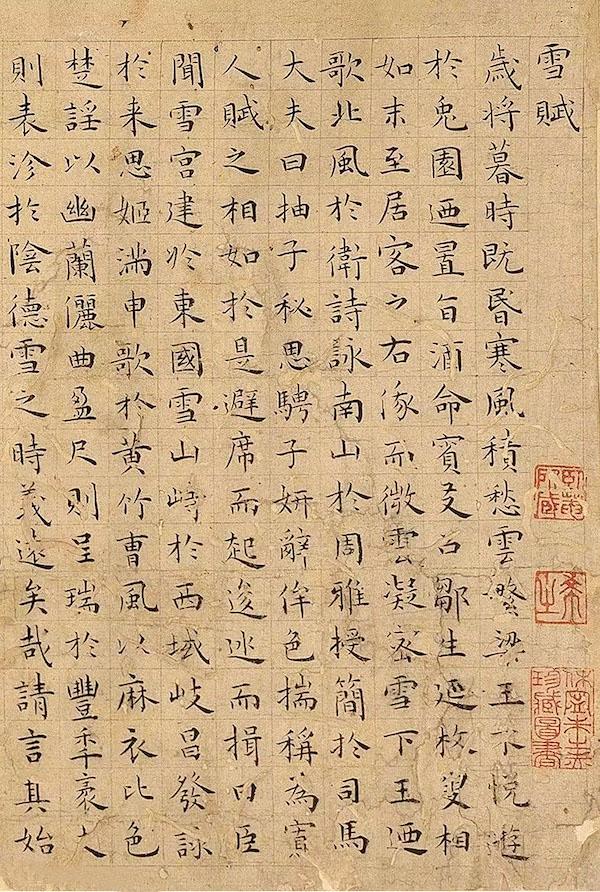 雪賦
歲将暮時旣昏寒風積愁雲繁梁王不悅遊
於兔園迺置旨酒命賓友召鄒生延枚叟相
如末至居客之右俄而微雲凝密雪下王迺
歌北風於衛詩詠南山於周雅授簡於司馬
大夫曰抽子秘思騁子妍辭侔色揣稱為寡
人賦之相如於是避席而起逡巡而揖曰臣
聞雪宮建於東國雪山峙於西域岐昌發詠
於来思姬滿申歌於黃竹曹風以麻衣比色
楚謡以幽蘭儷曲盈尺則呈瑞於豐年袤丈
則表沴於陰德雪之時義遠矣哉請言其始
臥菴所藏
休寧朱之赤珍藏圖書